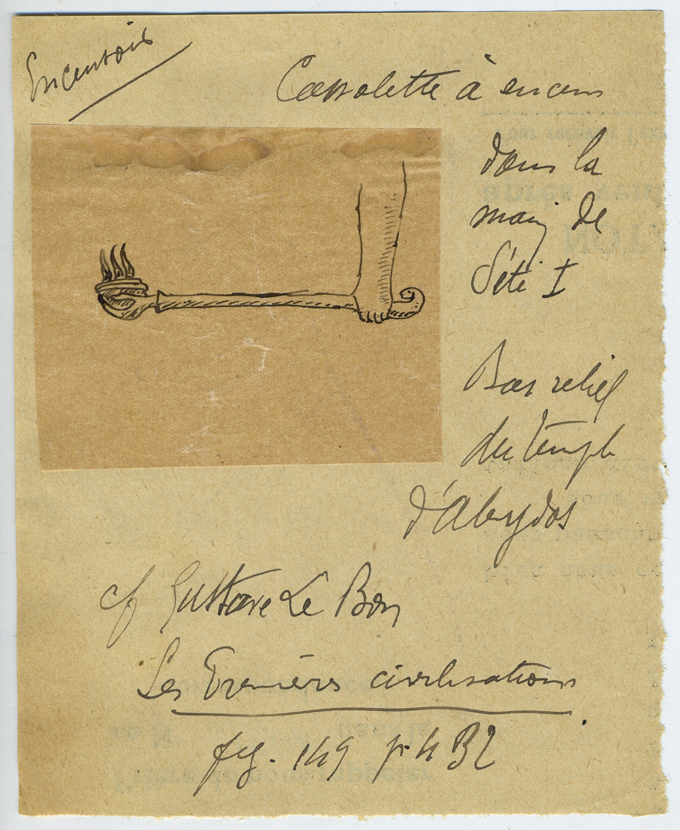 Encensoir
Cassolette à encens
dans la
main de
Séti I
Bas relief
du temple
d'Abydos
cf Gustave Le Bon
Les Premières civilisations
fig. 149 p. 432